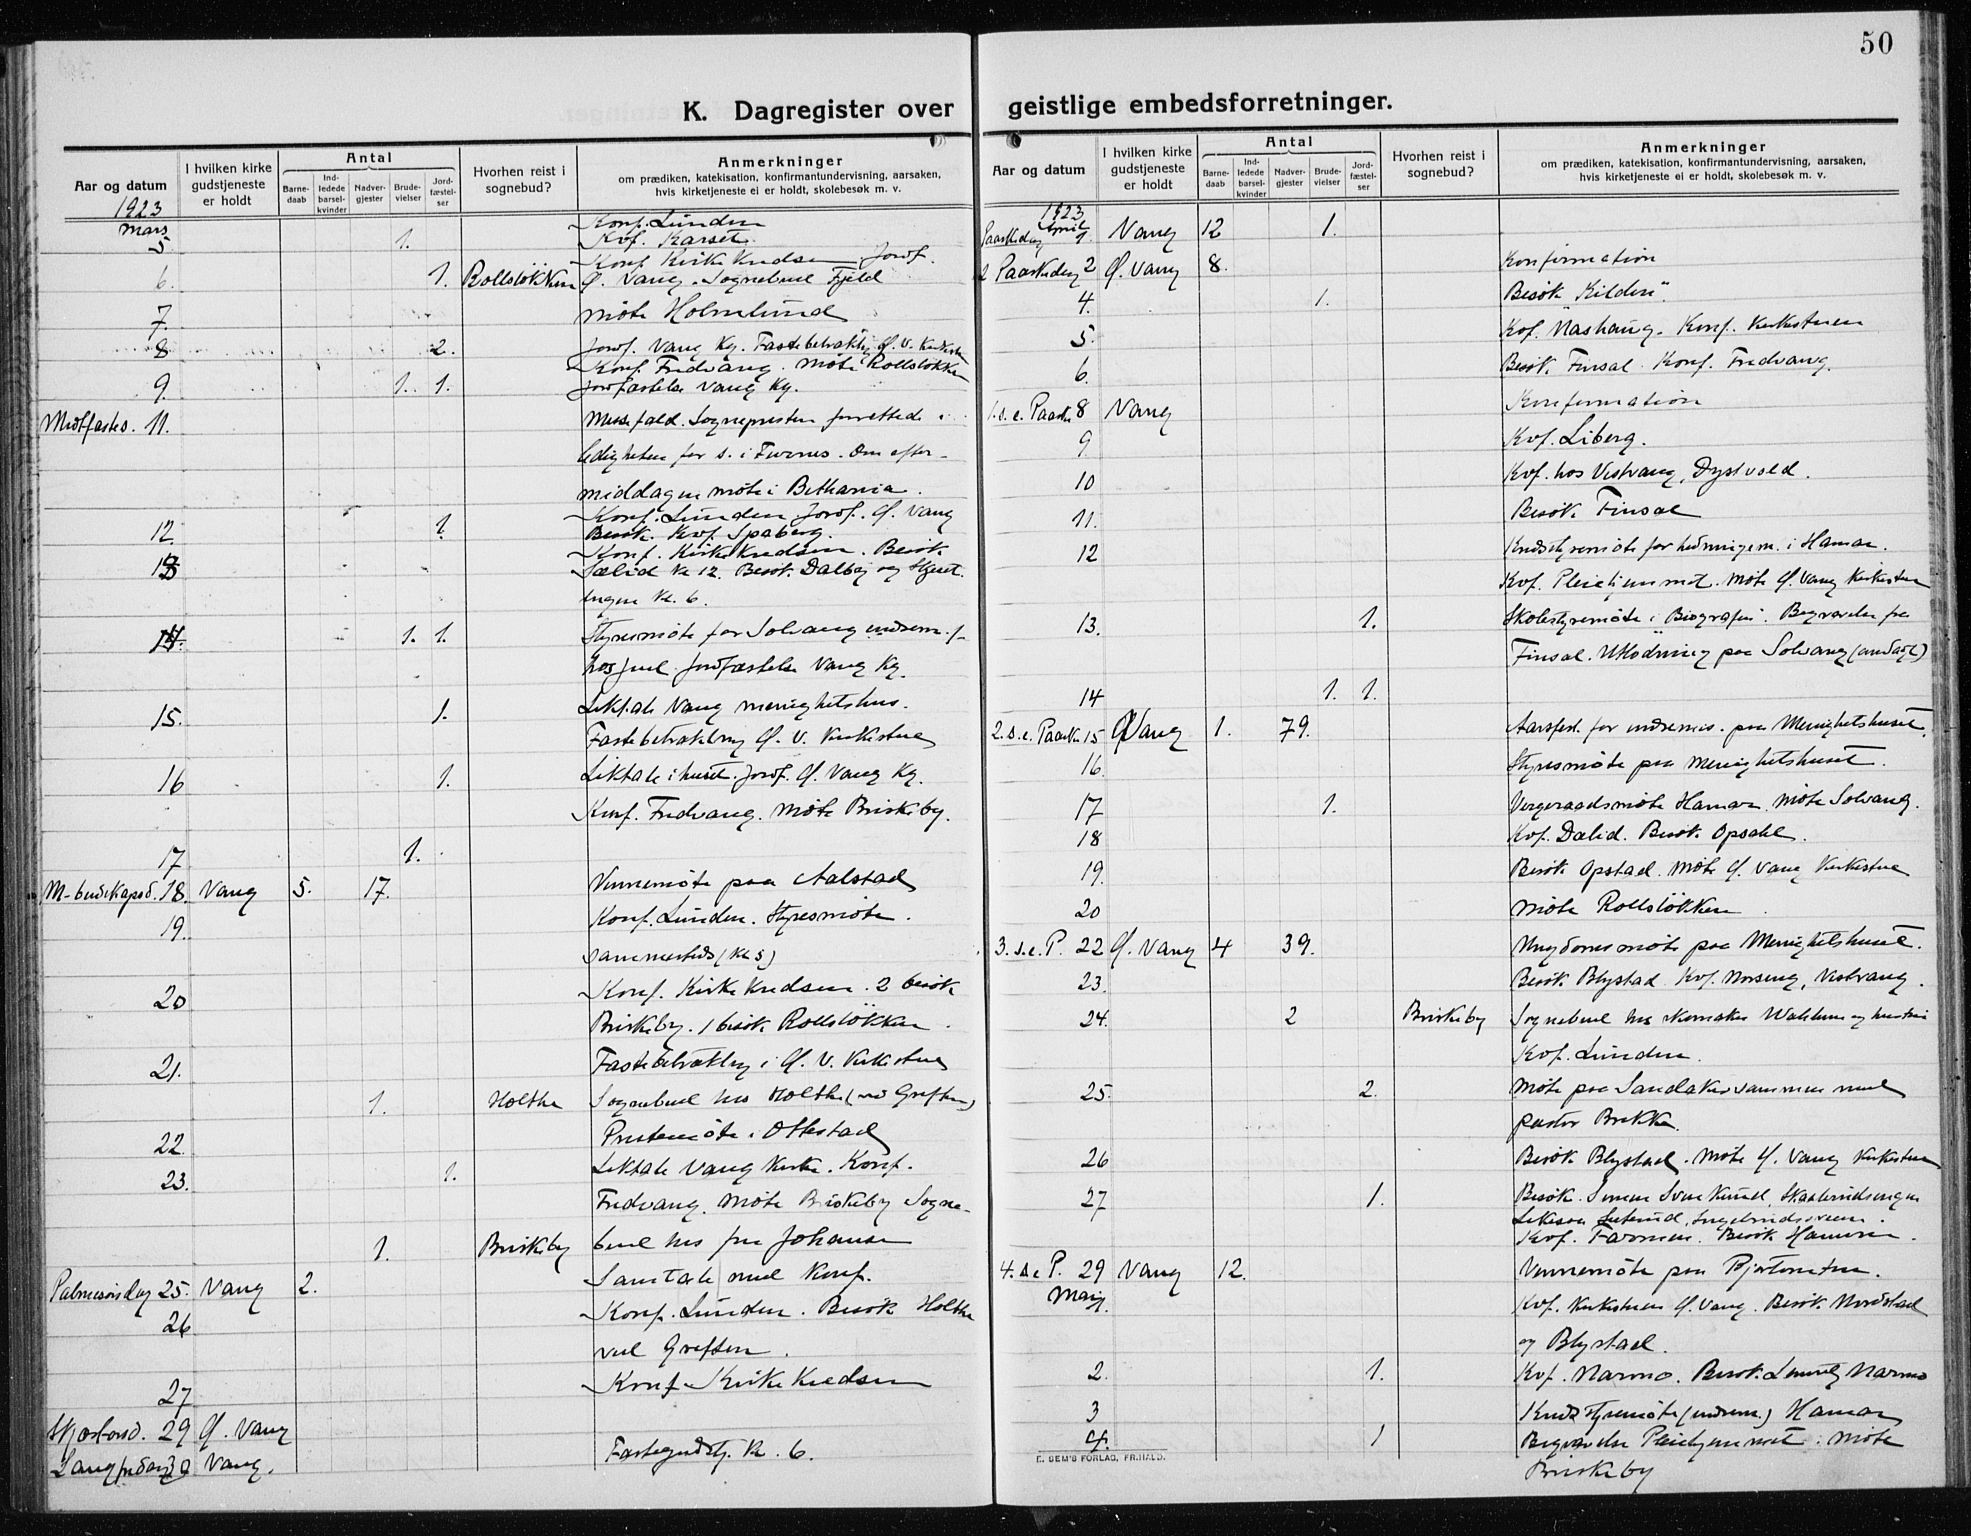 50
K. Dagregister over
Aar og datum
I hvilken kirke gudstjeneste er holdt
Antal
Barne-daab
Ind-ledede barsel-kvinder
Nadver-gjester
Brude-vielser
Jord-fæstel-ser
Hvorhen reist i sognebud?
Anmerkninger
om prædiken, katekisation, konfirmantundervisning, aarsaken,
hvis kirketjeneste ei er holdt, skolebesøk m. v.
1923
Mars Konf. Lunden
5 1. Kvf. Karset.
Konf. Kirke Kredsen Jordf.
6. 1. Rollsløkken Ø. Vang. Sognebud Fjeld
7. Møte Holmlund
8 2. Jordf. Vang Kg. Fastebetraktng Ø. V. Kirkestu
Konf. Fredvang. Møte Rollsløkken
9. 1. 1. Jordfæstelse Vang Kg.
Midtfastes. 11. Messefald. Sognepresten forrettede i
ledigheten for s. i Furnes. Om efter-
middagen møte i Bethania.
Konf. Lunden. Jordf. Ø. Vang
12. 1. Besøk. Kvf. Spaberg.
Konf. Kirke Kredsen. Besøk
13 Sælid kl 12. Besøk Dalby og
engen kl. 6.
14. 1. 1. Styresmøte for Solvang indrem. f-
hos Juel. Jordfæstelse Vang Kg.
15. 1. Liktale Vang menighetshus.
Fastebetraktning Ø. V. Kirkestue
16 1. Liktale i huset. Jordf. Ø. Vang Kg.
Konf. Fredvang. Møte Briskeby.
17 1.
M-budskapsd. 18. Vang 5. 17. Vennemøte paa Aalstad
19. Konf. Lunden. Styresmøte.
sammesteds (kl 5)
20 Konf. Kirke Kredsen. 2 besøk
Briskeby. 1 besøk Rollsløkken.
21. Fastebetraktng i Ø. V. Kirkestue
1. Holthe Sognebud hos Holthe (ved Greften)
22. Prestemøte i Ottestad
23. 1. Liktale Vang Kirke. Konf.
Fredvang. Møte Briskeby Sogne-
1. Briskeby bud hos fru Johansen
Samtale med konf.
Palmesøndag 25. Vang 2.
26 Konf. Lunden. Besøk Holthe
ved Greften.
27 Konf. Kirke Kredsen
Skjærtorsd. 29 Ø. Vang
Langfredag 30 Vang. Fastegudstj. kl. 6.
geistlige embedsforretninger.
Aar og datum
I hvilken kirke gudstjeneste er holdt
Antal
Barne-daab
Ind-ledede barsel-kvinder
Nadver-gjester
Brude-vielser
Jord-fæstel-ser
Hvorhen reist i sognebud?
Anmerkninger
om prædiken, katekisation, konfirmantundervisning, aarsaken,
hvis kirketjeneste ei er holdt, skolebesøk m. v.
1923
Paaskedag April 1. Vang 12 1.
2 Paaskedag 2 Ø. Vang 8. Konfirmation
4. 1. Besøk "Kilden".
5. Kvf. Nashaug. Konf. Kirkestuen
6. Besøk Finsal. Konf. Fredvang.
1. s. e. Paaske 8 Vang Konfirmation
9 Kvf. Liberg.
10 Kvf. hos Vestvang, Dystvold.
11. Besøk Finsal
12 Kredsstyremøte for hedningem. i Hamar.
Kvf. Pleiehjemmet. Møte Ø. Vang Kirkestue
13. 1. Skolestyremøte i "Biografen". Begravelse fra
Finsal. Utlodning paa Solvang (andagt)
14 1. 1.
2. s. e. Paaske 15 Ø Vang 1. 79. Aarsfest for indremis. paa Menighetshuset.
16. Styresmøte paa Menighetshuset.
17 1. Vergeraadsmøte Hamar. Møte Solvang.
18 Kvf. Dælid. Besøk Opsahl.
19. Besøk Opstad. Møte Ø. Vang Kirkestue
20 Møte Rollsløkken
3. s. e. P. 22 Ø. Vang 4 39. Ungdomsmøte paa Menighetshuset.
23. Besøk Blystad. Kvf. Norseng, Vestvang.
24. 2 Briskeby Sognebud hos skomaker og hustru
Kvf. Lunden.
25. 2. Møte paa Sandaker sammen med
pastor Brekke.
26 Besøk Blystad. Møte Ø. Vang Kirkestue
27 1. Besøk
Kvf. Farmen. Besøk Hamren.
4. s. e. P. 29 Vang 12. Vennemøte paa
Mai 1. Kvf. Kirkestuen Ø. Vang. Besøk Nordstad
og Blystad.
2. 1. Kvf. Narmo. Besøk Narmo
3 Kredsstyremøte (indrem.) Hamar
4. 1 Begravelse Pleiehjemmet. Møte
Briskeby
E. SEM'S FORLAG, FR.HALD.